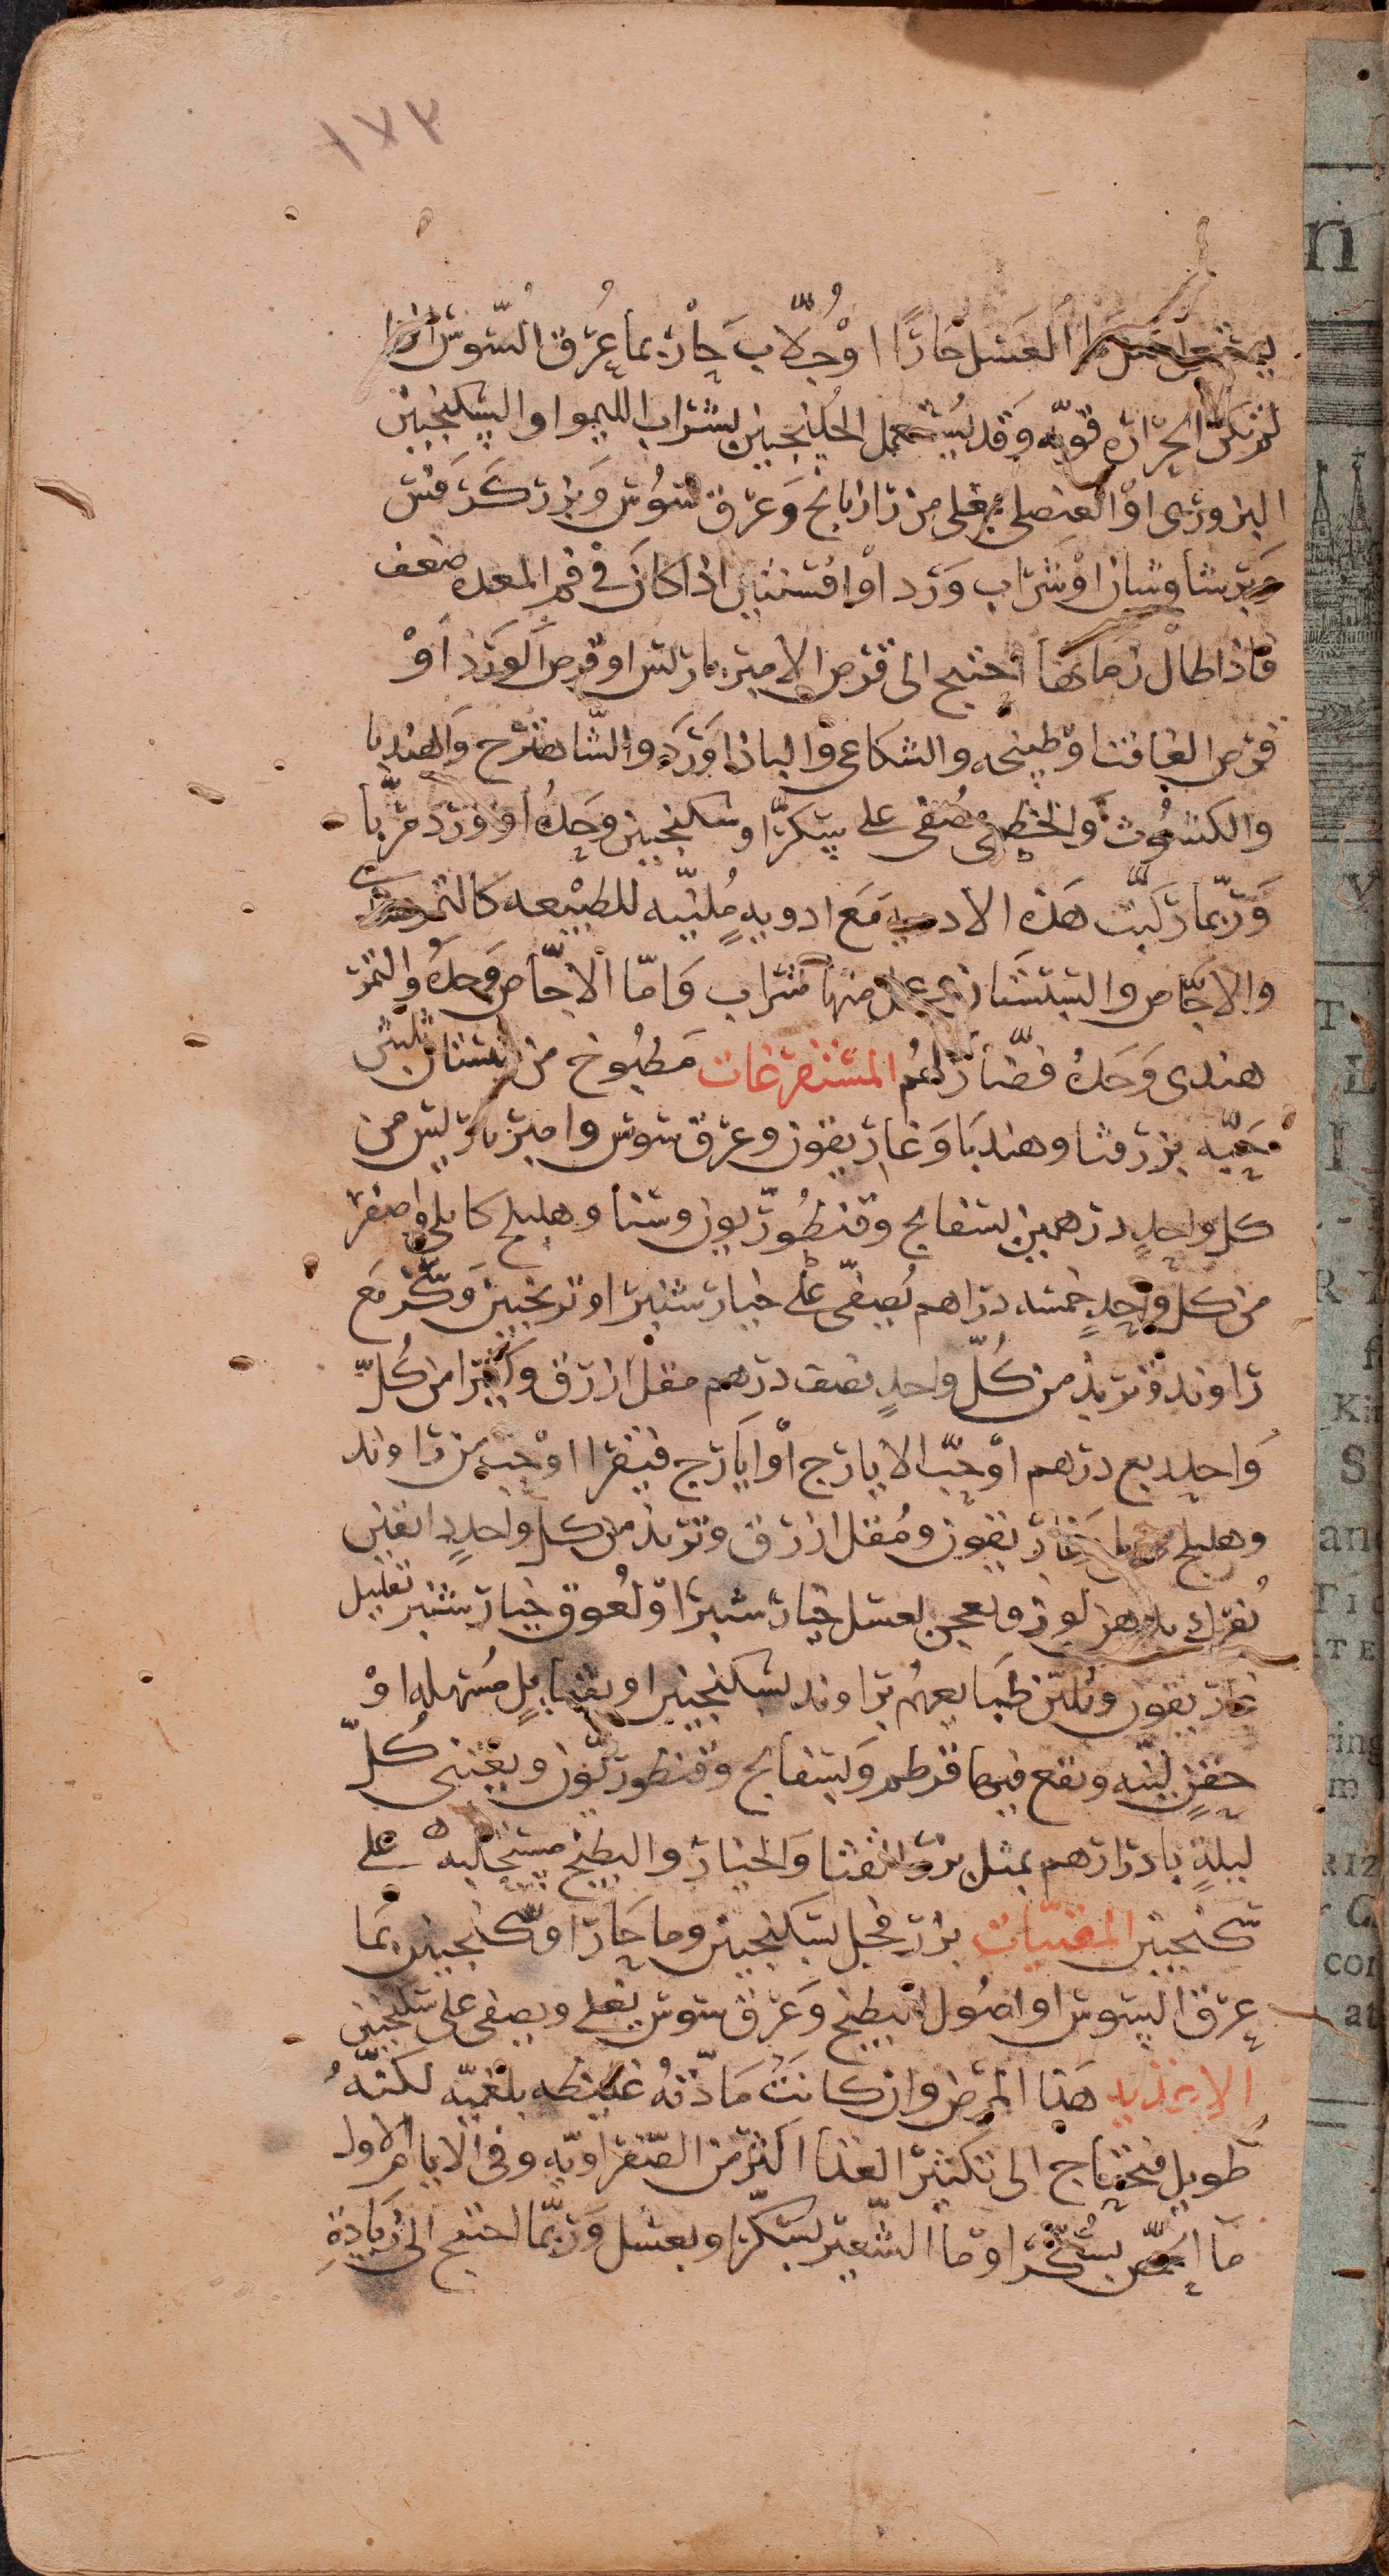 ١٧٣
العسل حارا او جُلّاب حار بماء عرق السوس اذا
لم تكن الحرارة قويّه وقد يستعمل الجلنجبين بشراب الليموا والسكنجبين
البزورى او العنصلى بمغلى من رازيانج وعرق سوس وبزر كرفس
وبرشاوشان او شراب ورد او افسنتين اذا كان فى فم المعده ضعف
فاذا طال زمانها احتيج الى قرص الامير باريس او قرص الورد او
قرص الغافت او طبيخه والشكاعى والباذاورد والشاهترج والهندبا
والكشوث والخطمى مصفى على سكر او سكنجبين وحده او ورد مربّا
وربّما ركبت هذه الادويه مع ادويهٍ مُليّنه للطبيعه كالتمرهندى
والاجّاص والسبستان او عمل منها شراب واما الاجّاص وحده والتمر
هندى وحده فضار لهم المستفرغات مطبوخ من سبستان ثلثين
حبّه بزر قثا وهندبا وغاريقون وعرق سوس وامير باريس من
كل واحدٍ درهمين بسفايج وقنطوريون وسنا وهليلج كابلى واصفر
من كل واحدٍ خمسه دراهم يُصفّى على خيار شنبر او ترنجبين وسكر مع
راوند وتربذ من كلّ واحدٍ نصف درهم مقل ازرق وكثيرا من كُلّ
واحد ربع درهم او حبّ الايارج او ايارج فيقرا او حب من راوند
وهليلج غاريقون ومُقل ازرق وتربذ من كل واحدٍ دانقين
يُفرك بدهن لوز ويعجن بعسل خيار شنبر او لعوق خيار شنبر بقليل
غاريقون وتُليّن طبايعهُم براوند بسكنجبين او بفتايل مُسهله او
حقنٍ ليّنه ويقع فيها قرطم وبسفايج وقنطوريون ويعتنى كُلّ
ليلةٍ بادرارهم بمثل بزر القثا والخيار والبطيخ مستحلبه على
سكنجبين المقيّيات بزر فجل بسكنجبين وما حارا وسكنجبين بما
عرق السوس او اصول البطيخ وعرق سوس يغلى ويصفى على سكنجبين
الاغذيه هذا المرض وان كانت مادّتهُ غليظه بلغميّه لكنّهُ
طويل فيحتاج الى تكثير الغذا اكثر من الصّفراويّه وفى الايام الاول
ما الحمّص بسكّر او ما الشّعير بسكّر او بعسل وربّما احتيج الى زيادةِ